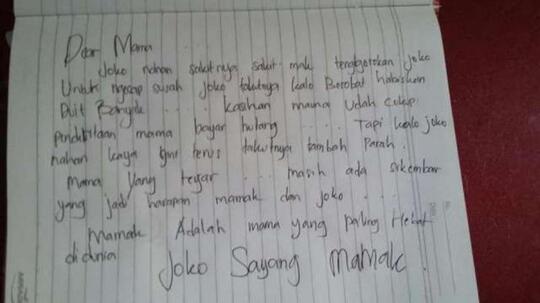 Dear Mama
Joko nahan sakitnya sakit mak tenggorokan joko
Untuk ngecap susah joko takutnya kalo Berobat habiskan
Duit Banyak .... kasihan mama udah cukup
penderitaan mama bayar hutang .... Tapi kalo joko
nahan kaya gini terus takutnya tambah Parah.
mama yang tegar ... masih ada sikembar
yang jadi harapan mamak dan joko ....
Mamak Adalah mama yang paling Hebat
didunia
Joko Sayang Mamak.